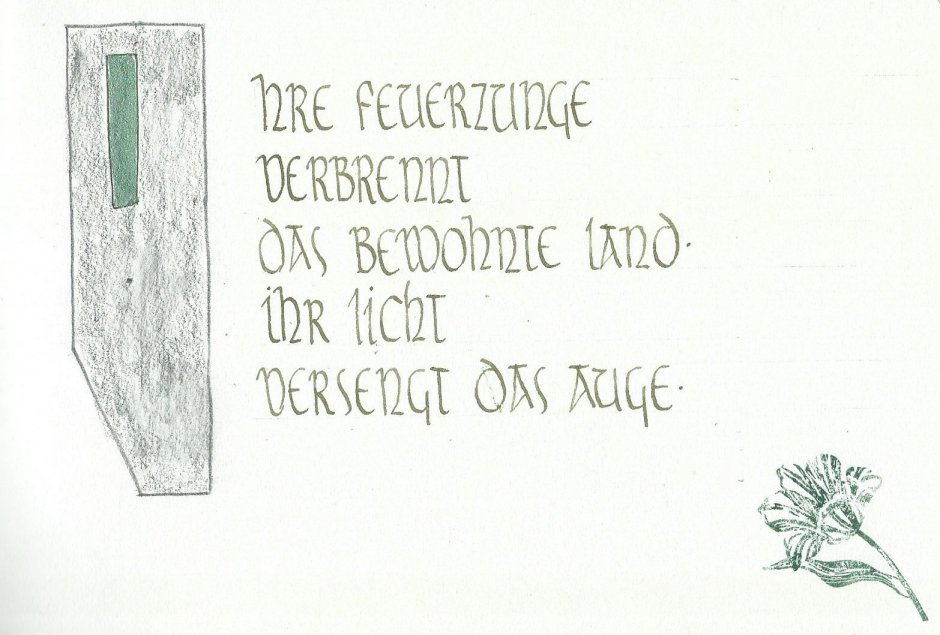 Ihre Feuerzunge
verbrennt
das bewohnte Land·
ihr Licht
versengt das Auge·